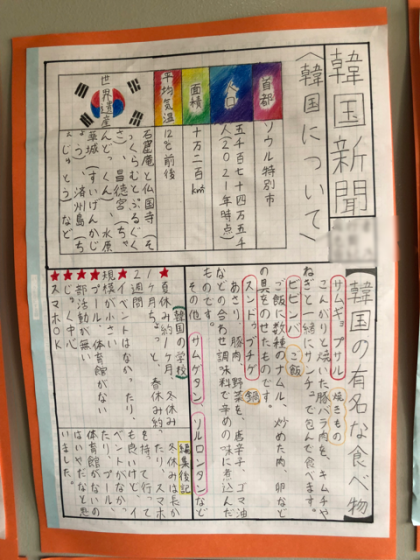 韓国新聞
〈韓国について〉
首都
ソウル特別市
人口
五千百七十四万五千
人(2021年時点)
面積
十万二百km²
平均気温
12℃前後
世界遺産
石窟庵と仏国寺(そ
っくらむとぶるぐく
さ)、昌徳宮(ちゃ
んどっくん)、水原
華城(すいげんかじ
ょう)、済州島(ち
ぇじゅとう)など
韓国の有名な食べ物
サムギョプサル 焼きもの
こんがりと焼いた豚バラ肉を、キムチや
ねぎと一緒にサンチュで包んで食べます。
ビビンバ ご飯
ご飯に数種のナムル、炒めた肉、卵など
の具をのせたものです。
スンドゥブチゲ 鍋
あさり、豚肉、野菜を、唐辛子、ゴマ油
などの合わせ調味料で辛めの味に煮込んだ
ものです。
その他 サムゲタン、ソルロンタンなど
韓国の学校
★夏休み約1ヶ月、冬休み
1ヶ月ちょっと、春休み約
2週間
★イベントはなかったり、
規模が小さい
★プール、体育館がない
★部活動が無い
★じゅく中心
★スマホOK
編集後記
冬休みは長か
ったり、スマホ
を持って行って
も良いけど、イ
ベントがなかっ
たり、プール、
体育館がないの
はいやだなと思
いました。